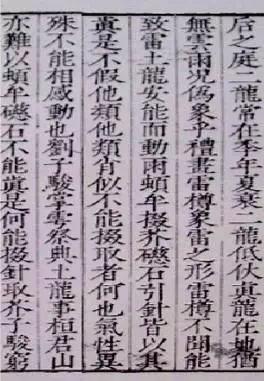 后之庭二龍常在季年夏衰二龍低伏真龍在地猶
無雲雨况偽象乎禮畫雷樽象雷之形雷樽不聞能
致雷土龍安能而動雨頓牟掇芥磁石引針皆以其
真是不假他類他類肖似不能掇取者何也氣性異
殊不能相感動也劉子駿掌雩祭典土龍事桓君山
亦難以頓牟磁石不能真是何能掇針取芥子駿窮